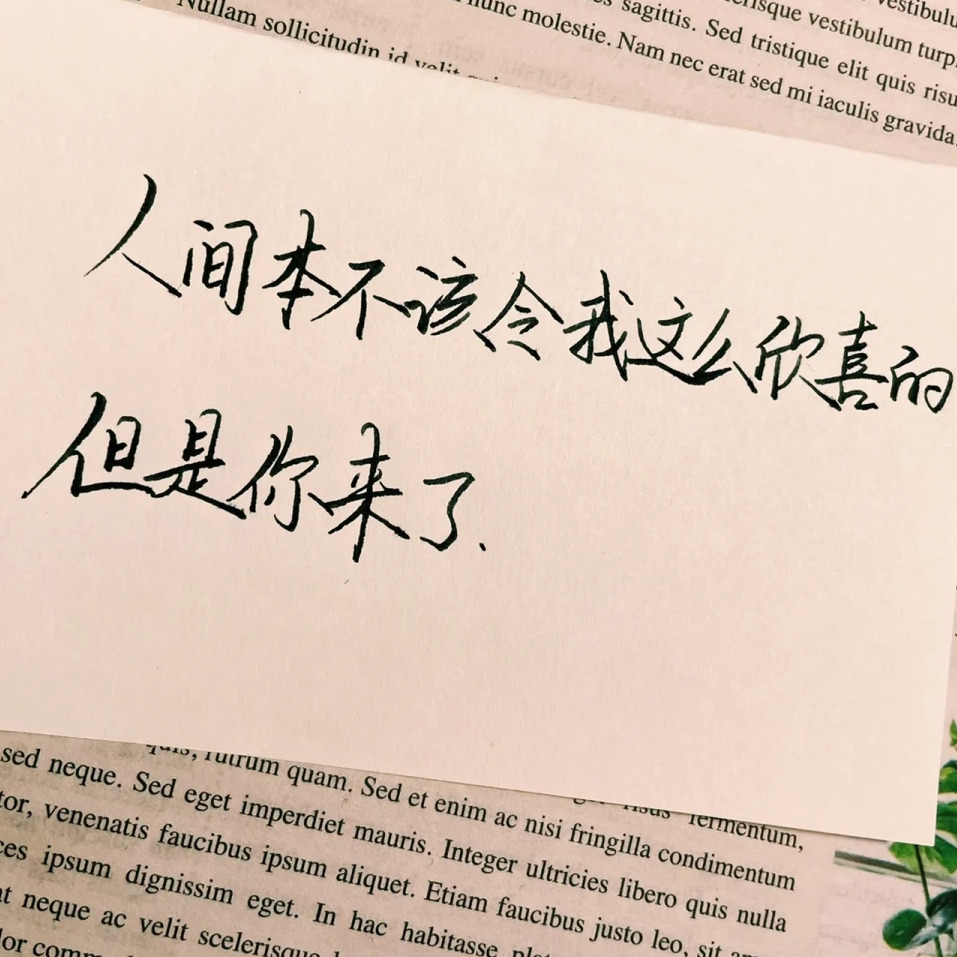 Nullam sollicitudin id velit
nunc molestie. Nam nec erat sed mi iaculis gravida.
sagittis. Sed tristique elit quis risu
vestibulum turp
vestibulu
人间本不该令我这么欣喜的
但是你来了.
quis, rutrum quam. Sed et enim ac nisi fringilla condimentum
risus fermentum,
sed neque. Sed eget imperdiet mauris. Integer ultricies libero quis nulla
tor, venenatis faucibus ipsum aliquet. Etiam faucibus justo leo, sit
ces ipsum dignissim eget. In hac habitasse
at neque ac velit scelerisque
lor comm